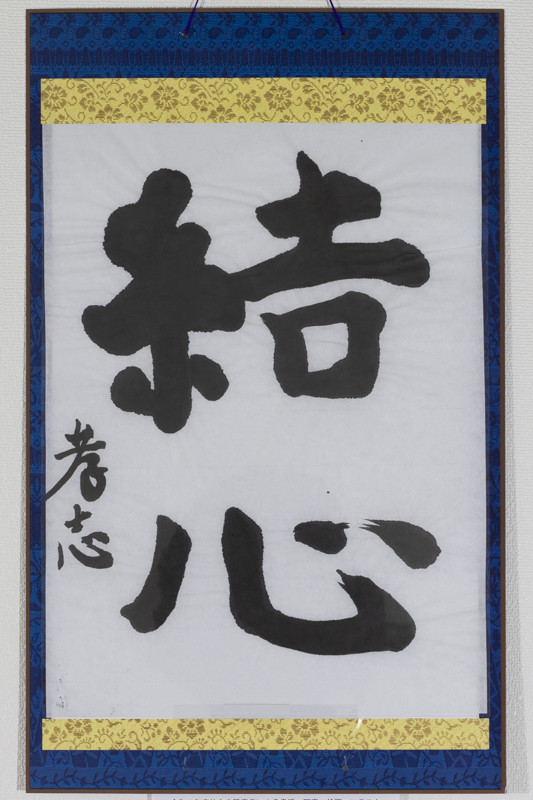 結心
孝志